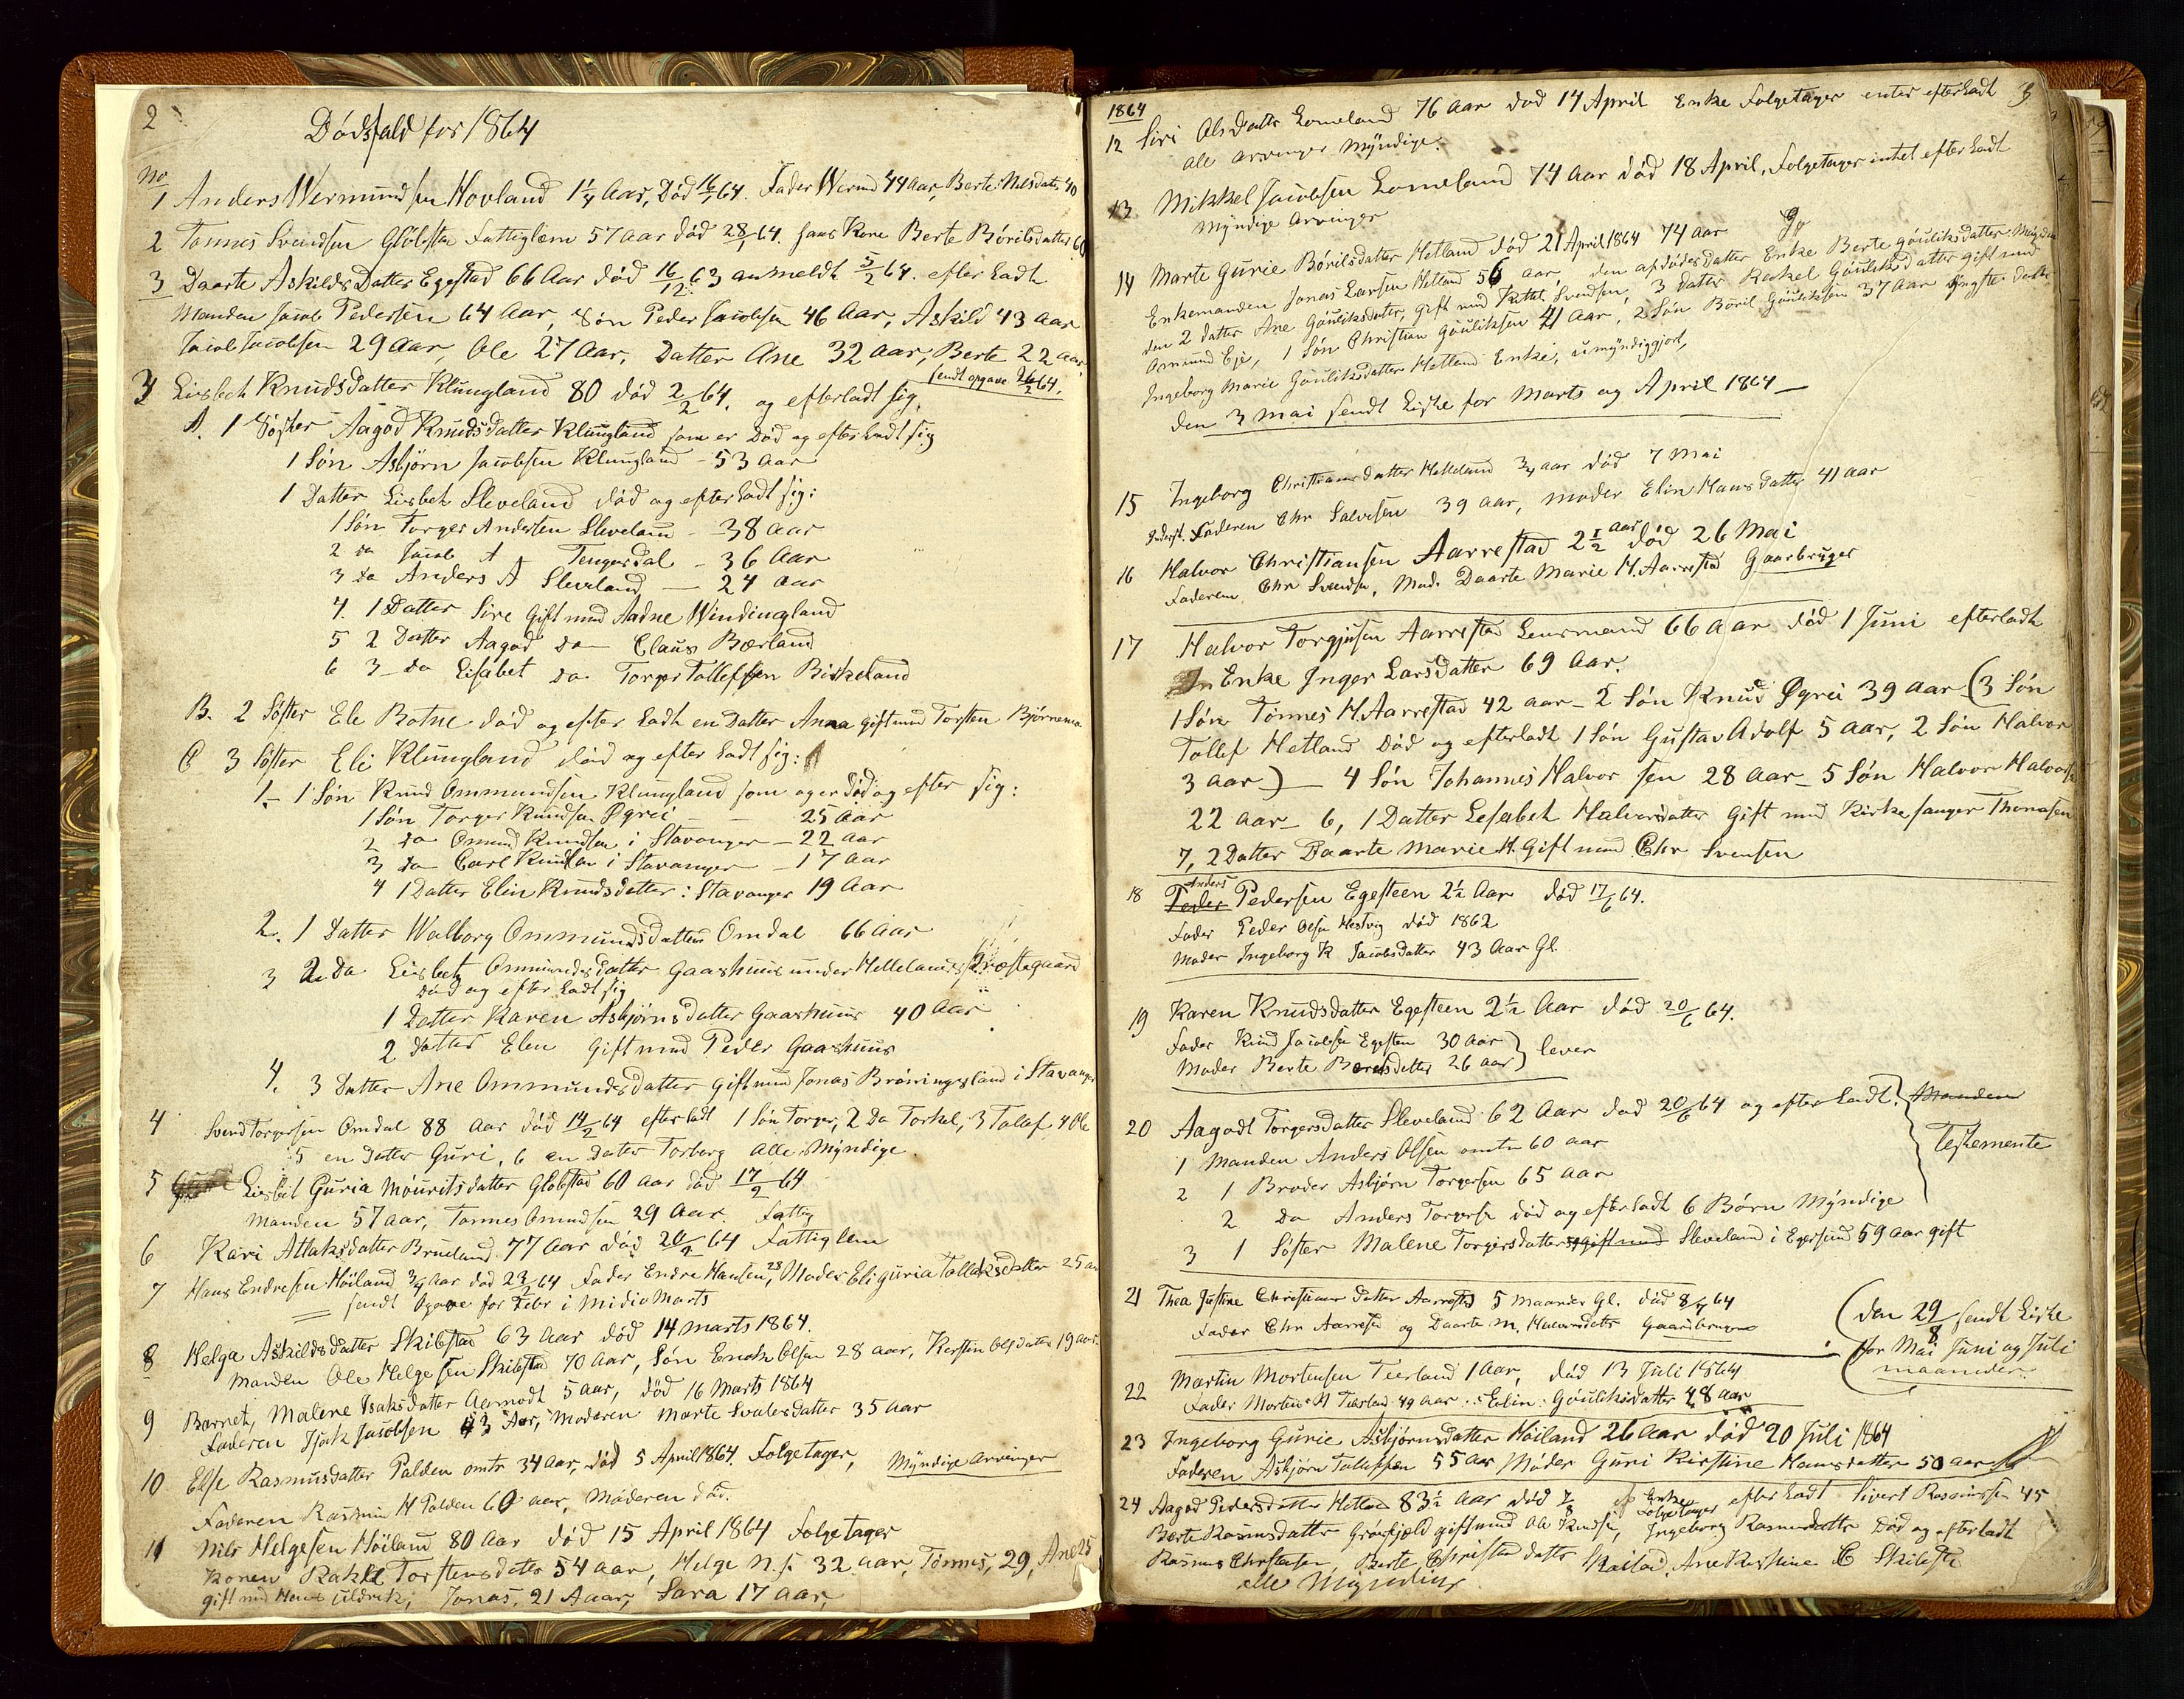 2
Dödsfald for 1864
No
1 Anders Wermundsen Hovland 1 1/4 Aar, Död 16/1 64. Fader Wermd 44 Aar, Berte Nilsdatr 40
2 Tönnes Svendsen Glöbstæ Fattiglem 57 aar död 28/1 64. hans Kone Berte Börilsdatter 60
3 Daarte Askilds Datter Egestad 66 Aar död 16/12 63 anmeldt 5/2 64. efterladt
Manden Jacob Pedersen 64 Aar, Sön Peder Jacobsen 46 Aar, Askild 43 aar
Jacob Jacobsen 29 aar, Ole 27 Aar, Datter Ane 32 aar, Berte 22 aar
sendt opgave 26/2 64.
3 Lisbeth Knudsdatter Klungland 80 död 2/2 64. og efterladt sig.
A. 1 Söster Aagod Knudsdatter Klungland som er Död og efterladt sig
1 Sön Asbjörn Jacobsen Klungland - 53 aar
1 Datter Lisbeh Sleveland död og efterladt sig:
1 Sön Torger Andersen Sleveland - 38 aar
2 do Jacob A Tengesdal - 36 Aar
3 do Anders A Sleveland - 24 aar
4. 1 Datter Sire Gift med Aadne Windingland
5 2 Datter Aagod do Claus Bærland
6 3 do Lisabet do Torger Tollefsen Birkeland
B. 2 Söster Ele Botne död og efterladt en Datter Anna gift med Torsten Bjørnemo
C 3 Söster Eli Klungland död og efterladt sig:
1 - 1 Sön Knud Ommundsen Klungland som og er död og efter sig:
1 Sön Torger Knudsen Øgrei - 25 aar
2 do Omund Knudsen i Stavanger - 22 aar
3 do Carl Knudsen i Stavanger - 17 aar
4 1 Datter Elin Knudsdatter i Stavanger 19 Aar
2. 1 Datter Walborg Ommundsdatter Omdal 66 aar
3 2 Da Lisbeth Ommundsdatter Gaashuus under Hellelands Præstegaard
död og efterladt sig
1 Datter Karen Asbjörnsdatter Gaashuus 40 aar
2 Datter Elen Gift med Peder Gaashuus
4. 3 Datter Ane Ommundsdatter gift med Jonas Bröningsland i Stavanger
4 Svend Torgersen Omdal 88 aar död 14/2 64 efterladt 1 Sön Torger, 2 Da Torkel, 3 Tollef, 4 Ole
5 en datter Guri, 6 en dater Torborg alle Myndige.
5 Lisbet Guria Möuritsdatter Globstad 60 aar död 17/2 64
Manden 57 aar, Tönnes Omundsen 29 aar. Fattig
6 Kari Atlaksdatter Brueland 77 Aar död 20/2 64 Fattiglem
7 Hans Endresen Höiland 3/4 aar död 23/2 64 Fader Endre Hansen 28, Moder Eli guria Tollaksdatter 25 aar
sendt Opgave for Febr i Midio Marts
8 Helga Askildsdatter Skibstad 63 Aar död 14 Marts 1864.
Manden Ole Helgesen Skibstad 70 Aar, Sön Enok Olsen 28 aar, Kerstin Olsdatter 19 aar.
9 Barnet, Malene Isaksdatter Aamodt 5 aar, död 16 Marts 1864
Faderen Isak Jacobsen 43 Aar, Moderen Marte Svalesdatter 35 aar
10 Else Rasmusdatter Palden omtr 34 aar, död 5 April 1864. Folgetager, Myndige arvinger
Faderen Rasmus H Palden 60 aar, Möderen död.
11 Nils Helgesen Höiland 80 aar död 15 April 1864 Folgetager
Konen Rakel Torstensdatter 54 aar, Helge N.s. 32. aar, Tönnes, 29, Ane 25
gift med Hans Uldrik, Jonas, 21 Aaar, Sara 17 aar,
1864
3
12 Siri Olsdatter Lomeland 76 Aar död 14 April Enke Folgetager entet efterladt
alle arvinger Myndige.
13 Mikkel Jacobsen Lomeland 74 aar död 18 April, Folgetager intet efterladt
Myndige arvinger
14 Marte Gurie Börilsdatter Hetland död 21 April 1864 74 aar
Enkemanden Jonas Larsen Hetland 56 aar den afdödes datter Enke Berte Göuliksdatter
den 2 datter Ane Göuliksdatter, gift med Kittel Svendsen, 3 Datter Rakel Göuliksdatter gift med
Omund Eje, 1 Sön Christian Göuliksen 41 aar, 2 Sön Böril Göuliksen 37 aar Yngste datter
Ingeborg Marie Göuliksdatter Hetland Enke, umyndiggjort,
den 3 Mai sendt Liste for Marts og April 1864 -
15 Ingeborg Christiansdatter Helleland 3/4 aar död 7 Mai
Faderen Chr Salvesen 39 aar, moder Elin Hansdatter 41 aar
16 Halvor Christiansen Aarrestad 2 1/2 aar död 26 Mai
Faderen Chr Svendsen, Mod. Daarte Marie H. Aarrestad Gaarbruger
17 Halvor Torgjusen Aarrestad Lensmand 66 aar död 1 Juni efterladt
En Enke Inger Larsdatter 69 Aar.
1 Sön Tönnes H Aarrestad 42 aar - 2 Sön Knud Øgrei 39 aar - (3 Sön
Tollef Hetland död og efterladt 1 Sön Gustav Adolf 5 aar, 2 Sön Halvor
3 aar) - 4 Sön Johannes Halvorsen 28 aar - 5 Sön Halvor Halvorsen
22 aar - 6, 1 Datter Lesabet Halvorsdatter Gift med Kirkesanger Thomasen
7, 2 Datter Daarte Marie H. Gift med Chr Svensen
Anders
18 Peder Pedersen Egesteen 2 1/2 Aar död 17/6 64.
Fader Peder Olsen Hestvig död 1862
Moder Ingeborg K Jacobsdatter 43 Aar Gl.
19 Karen Knudsdatter Egesteen 2 1/2 Aar död 20/6 64.
Fader Knud Jacobsen Egesten 30 aar
Moder Berte Borelsdatter 26 aar } lever
20 Aagodt Torgersdatter Sleveland 62 Aar död 20/6 64 og efterladt. Manden
Testemente
1 Manden Anders Olsen omtr 60 aar
2 1 Broder Asbjörn Torgersen 65 aar
2 Do Anders Torgersen död og efterladt 6 Börn Myndige
3 1 Söster Malene Torgersdatter gift med Sleveland i Egersund 59 aar gift
21 Thea Justine Christiansdatter Aarrestad 5 Maaneder Gl. död 8/7 64
Fader Chr Aarrestad og Daarte M. Halvorsdatter Gaardbruger
(Den 29/8 sendt Liste
for Mai Juni og Juli
maaneder.
22 Martin Mortensen Teerland 1 Aar, död 13 Juli 1864
Fader Morten H Teerland 49 aar :: Elin: Göuliksdatter 48 aar
23 Ingeborg Gurie Asbjörnsdatter Höiland 26 aar död 20 Juli 1864
Faderen Asbjörn Tollefsen 55 aar Moder Guri Kirstine Hansdatter 50 aar
24 Aagod Pedersdatter Hetland 83 1/2 aar död Enke Folgetager efterladt Sivert Rasmussen 45
Berte Rasmusdatter Grönfjeld gift med Ole Knudsen, Ingeborg Rasmusdatter död og efterladt
Rasmus Christensen, Berte Christensdatter Skailad, Ane Kirstine C Skibstad
alle Myndige